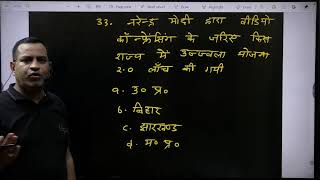 33. नरेन्द्र मोदी द्वारा वीडियो
कॉन्फ्रेसिंग के जरिए किस
राज्य में उज्ज्वला योजना
2.0 लाँच की गयी
a. उ० प्र०
b. बिहार
c. झारखण्ड
d. म० प्र०